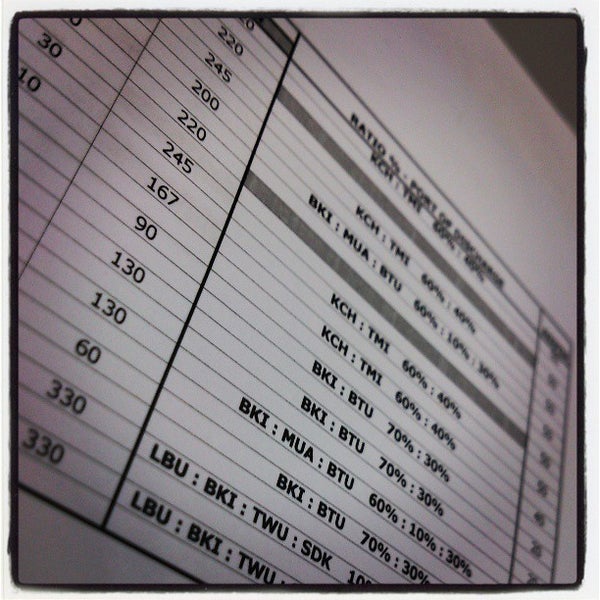 30
10
220
245
200
220
245
167
90
130
130
60
330
330
RATIO % - PORT OF DISCHARGE
KCH : TMI 60% : 40%
KCH : TMI 60% : 40%
BKI : MUA : BTU 60% : 10% : 30%
KCH : TMI 60% : 40%
KCH : TMI 60% : 40%
BKI : BTU 70% : 30%
BKI : BTU 70% : 30%
BKI : MUA : BTU 60% : 10% : 30%
BKI : BTU 70% : 30%
LBU : BKI : TWU : SDK
LBU : BKI : TWU :